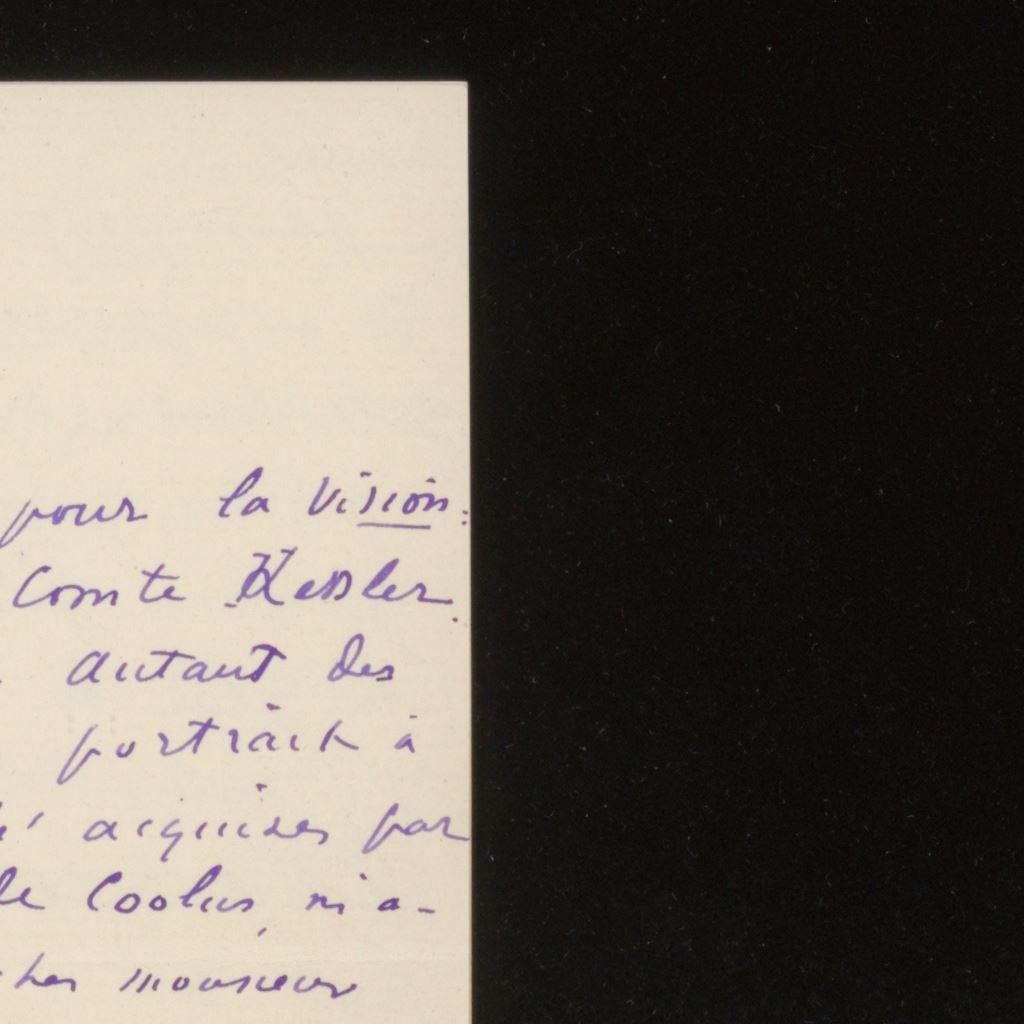 pour la Vision:
Comte Kessler.
autant des
portraits à
acquises par
de Coolus, m'a-
cher monsieur